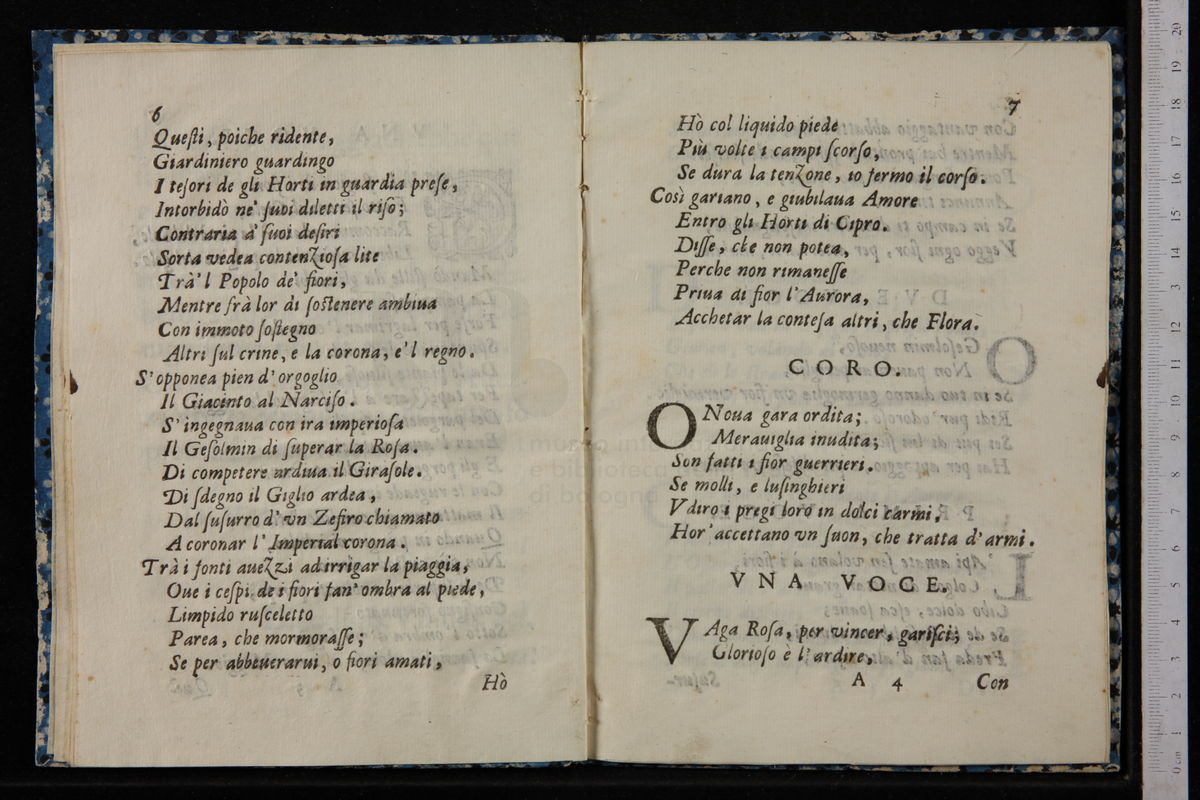 6
Queſti, poiche ridente,
Giardiniero guardingo
I teſori de gli Horti in guardia preſe,
Intorbidò ne' ſuoi diletti il riſo;
Contraria à ſuoi deſiri
Sorta vedea contenzioſa lite
Trà'l Popolo de' fiori,
Mentre frà lor di ſoſtenere ambiua
Con immoto ſoſtegno
Altri ſul crine, e la corona, e'l regno.
S'opponea pien d'orgoglio
Il Giacinto al Narciſo.
S'ingegnaua con ira imperioſa
Il Geſolmin di ſuperar la Roſa.
Di competere ardiua il Giraſole.
Di ſdegno il Giglio ardea,
Dal ſuſurro d'vn Zefiro chiamato
A coronar l'Imperial corona.
Trà i fonti auezzi ad irrigar la piaggia,
Oue i ceſpi de i fiori fan' ombra al piede,
Limpido ruſceletto
Parea, che mormoraſſe;
Se per abbeuerarui, o fiori amati,
Hò
7
Hò col liquido piede
Più volte i campi ſcorſo,
Se dura la tenzone, io fermo il corſo.
Così gariano, e giubilaua Amore
Entro gli Horti di Cipro.
Diſſe, che non potea,
Perche non rimaneſſe
Priua di fior l'Aurora,
Acchetar la conteſa altri, che Flora.
CORO.
O Noua gara ordita;
Merauiglia inudita;
Son fatti i fior guerrieri.
Se molli, e luſinghieri
Vdiro i pregi loro in dolci carmi,
Hor' accettano vn ſuon, che tratta d'armi.
VNA VOCE.
VAga Roſa, per vincer, gariſci;
Glorioſo è l'ardire,
A 4
Con